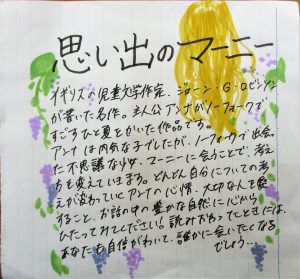 思い出のマーニー
イギリスの児童文学作家、ジョーン・G・ロビンソン
が書いた名作。主人公アンナがノーフォークで
すごすひと夏をかいた作品です。
アンナは内気な子でしたが、ノーフォークで出会っ
た不思議な少女、マーニーに会うことで、考え
方も変えていきます。どんどん自分についての考
えが変わっていくアンナの心情、大切な人を愛
すること、お話の中の豊かな自然に心から
ひたってみてください！読みおわったときには、
あなたも自信がわいて、誰かに会いたくなる
でしょう…